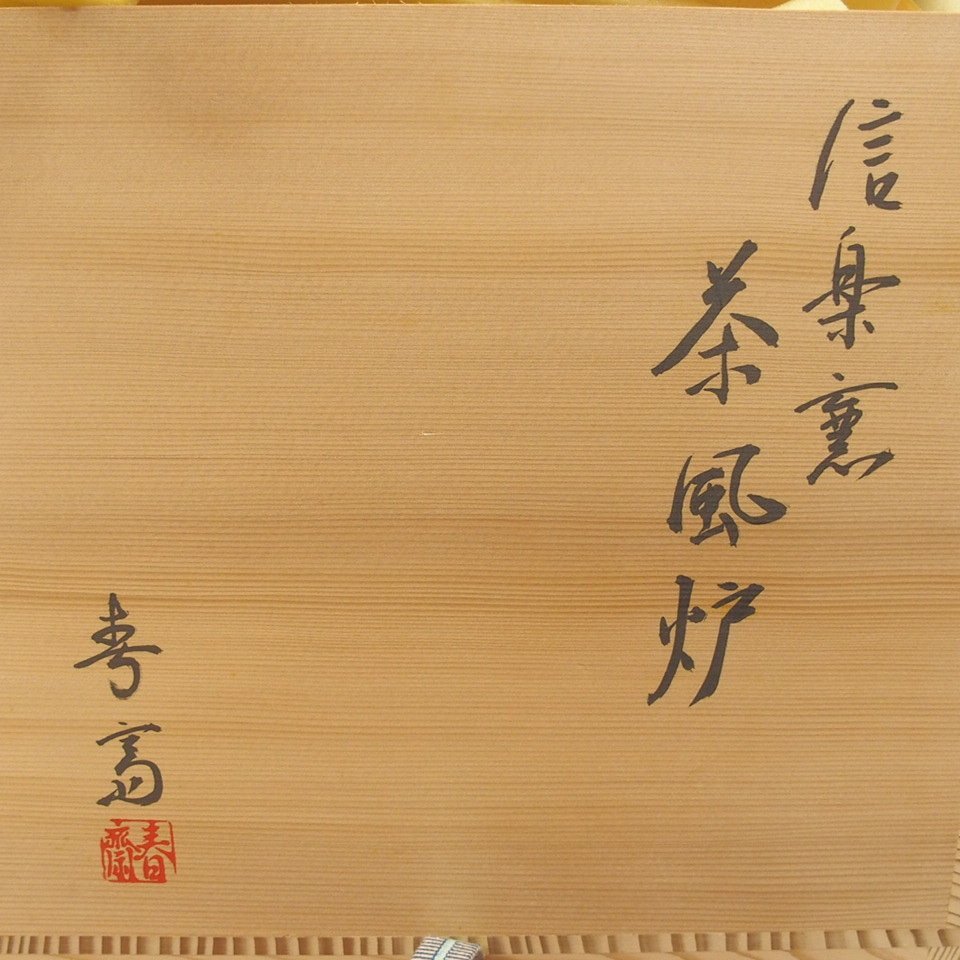 信楽窯
茶風炉
春斎
春齋